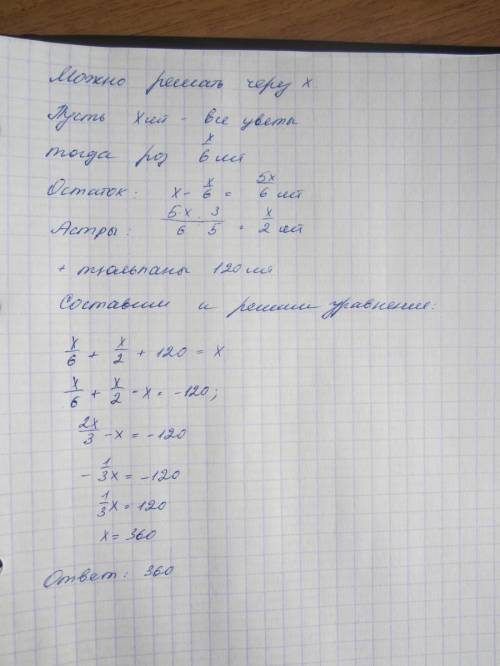 Можно решать через х
Пусть х шт - все цветы
тогда роз x/6 шт
Остаток: x - x/6 = 5x/6 шт
Астры: 5x · 3 / 6 · 5 = x/2 шт
+ тюльпаны 120 шт
Составим и решим уравнение:
x/6 + x/2 + 120 = x
x/6 + x/2 - x = -120;
2x/3 - x = -120
- 1/3 x = -120
1/3 x = 120
x = 360
Ответ: 360